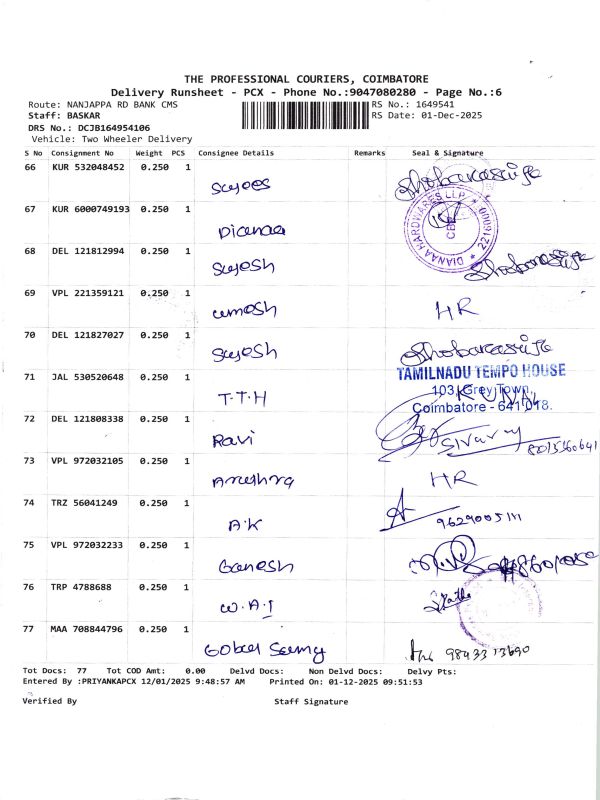 THE PROFESSIONAL COURIERS, COIMBATORE
Delivery Runsheet - PCX - Phone No.:9047080280 - Page No.:6
Route: NANJAPPA RD BANK CMS RS No.: 1649541
Staff: BASKAR RS Date: 01-Dec-2025
DRS No.: DCJB164954106
Vehicle: Two Wheeler Delivery
S No Consignment No Weight PCS Consignee Details Remarks Seal & Signature
66 KUR 532048452 0.250 1
67 KUR 6000749193 0.250 1 Dianaa
DIANAA HARDWARES LLP
CBE
68 DEL 121812994 0.250 1 Sujesh
69 VPL 221359121 0.250 1 umesh HR
70 DEL 121827027 0.250 1 Sujesh
71 JAL 530520648 0.250 1 T.T.H
TAMILNADU TEMPO HOUSE
103, Grey Town,
Coimbatore - 641 018.
72 DEL 121808338 0.250 1 Ravi
73 VPL 972032105 0.250 1 HR
74 TRZ 56041249 0.250 1 A.K
75 VPL 972032233 0.250 1 Ganesh
76 TRP 4788688 0.250 1 W.A.I
77 MAA 708844796 0.250 1
Tot Docs: 77 Tot COD Amt: 0.00 Delvd Docs: Non Delvd Docs: Delvy Pts:
Entered By :PRIYANKAPCX 12/01/2025 9:48:57 AM Printed On: 01-12-2025 09:51:53
Verified By Staff Signature